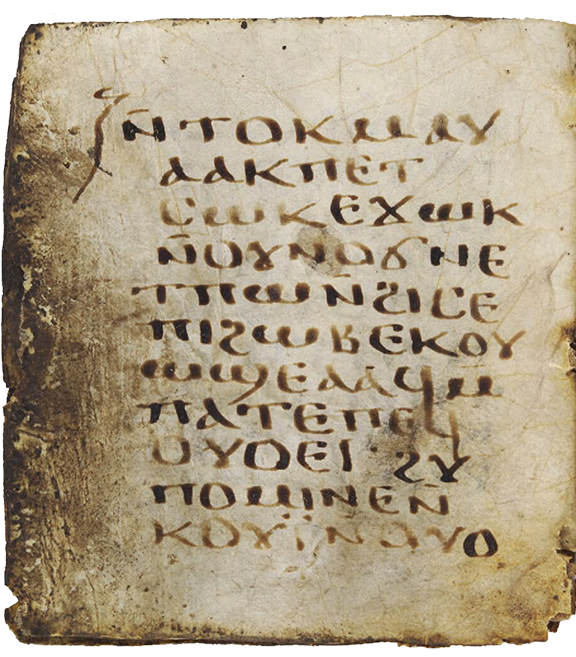 ⲛ̄ⲧⲟⲕⲙⲁⲩ
ⲁⲁⲕⲡⲉⲧ
ⲥⲱⲕⲉϫⲱⲕ
ⲛ̄ⲟⲩⲛⲟϭⲛⲉ
ⲧⲡⲱⲛ̄ϩⲓⲥⲉ
ⲡⲓϩⲱⲃⲉⲕⲟⲩ
ⲱϣⲉⲁⲁϥⲙ
ⲡⲁⲧⲉⲡⲉϥ
ⲟⲩⲟⲉⲓ· ϩⲩ
ⲡⲟⲙⲓⲛⲉⲛ̄
ⲕⲟⲩⲓ̈ⲛⲁⲩⲟ